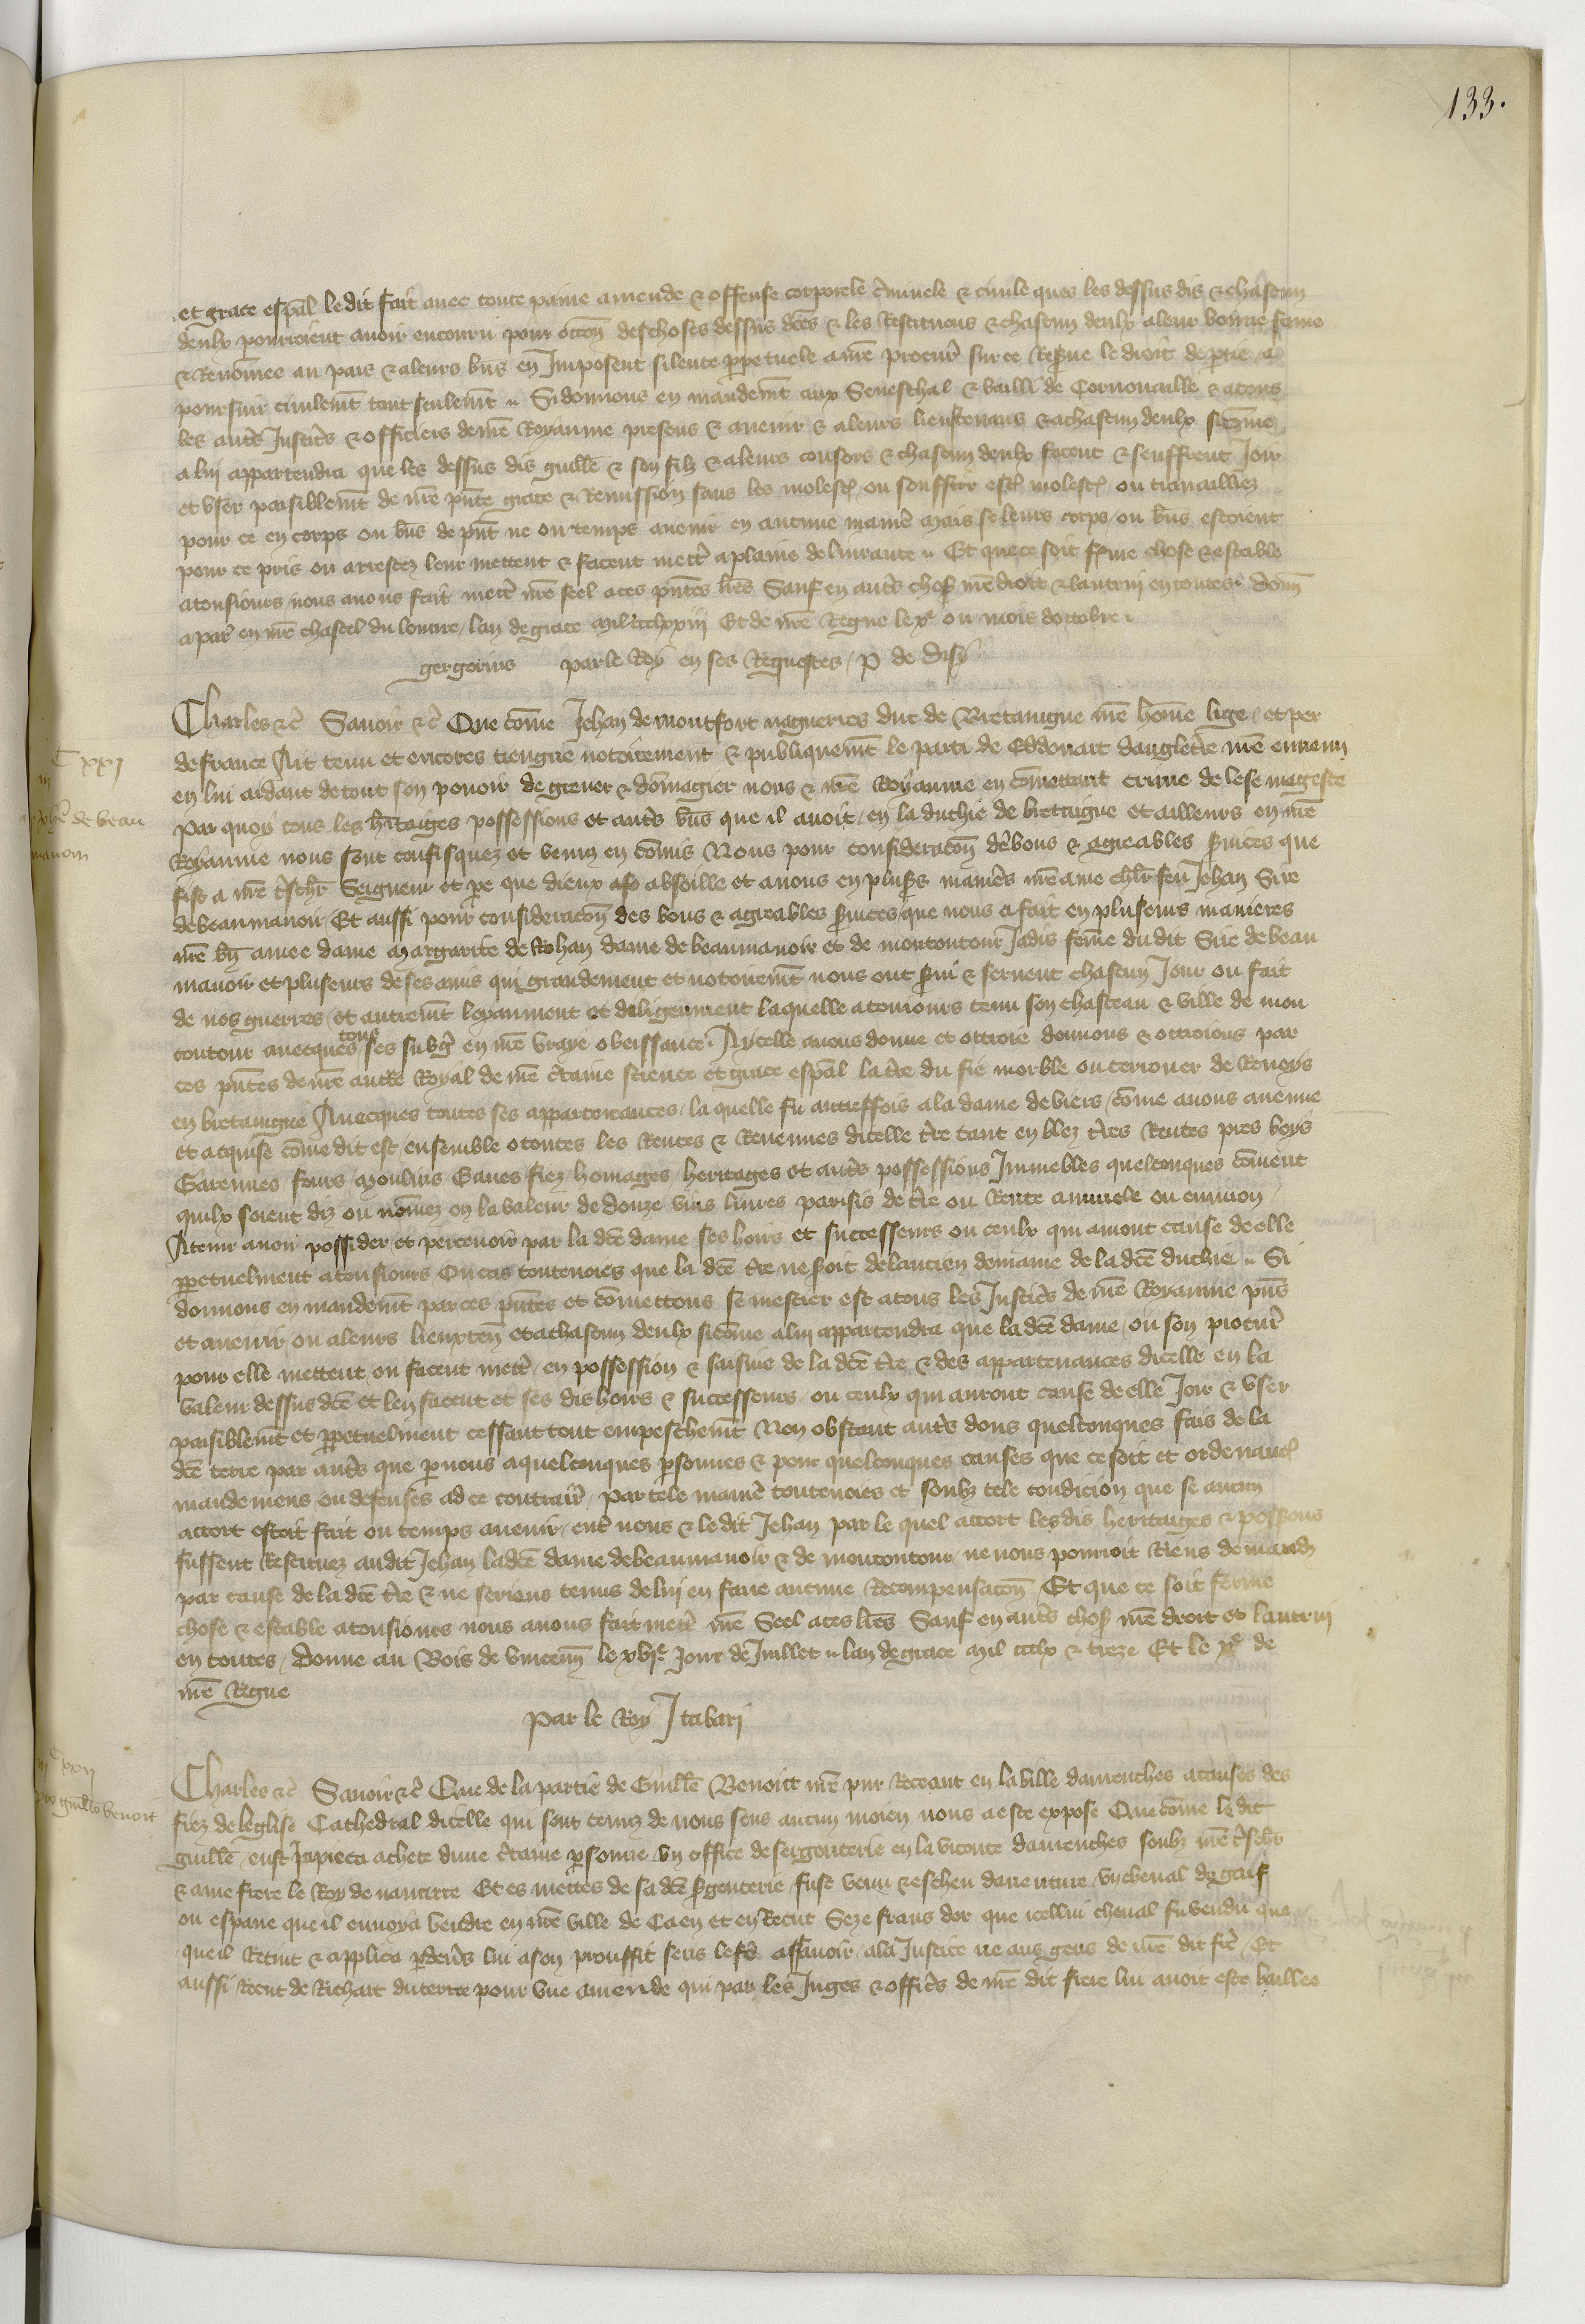 133.
et grace esp̄al le dit fait avec toute paine amende & offense corporele c̃minele & civile que les dessus dis & chascun
deulx pourroient avoir encouru pour occõn des choses dessus d̃ces & les Restituons & chascun deulx a leur bonne fame
& Renõmee au pais & a leurs b̃ns en Imposent silence p̱petuele a nr̃e procur̃ sur ce Reserve le droit de ptie a
poursuir civilem̃t tout seulem̃t Si donnons en mandem̃t aux Seneschal & bailli de Cornouaille & a tous
les aut̃s Justic̃s & officiers de nr̃e Royaume presens & avenir & a leurs lieuxtenans & a chascun deulx si cõme
a lui appartendra que les dessus dis guill̃e & son filz & a leurs consors & chascun deulx facent & seuffrent Joir
et user paisiblem̃t de nr̃e p̃nte grace & Remission sans les molest̃ ou souffrir est̃ molest̃ ou travailliez
pour ce en corps ou b̃ns de p̃nt ne ou temps avenir en aucune manier̃ Mais se leurs corps ou b̃ns estoient
pour ce pris ou arrestez leur mettent & facent mectr̃ a plaine delivrance Et que ce soit ferme chose & estable
a tousiours nous avons fait mectr̃ nr̃e seel a ces p̃ntes l̃res Sauf en aut̃s choses nr̃e droit & lautrui en toutes Donn̄
a par̃ en nr̃e chastel du louvre lan de grace Mil ccclxxiij Et de nr̃e Regne le xe ou mois doctobre
gergorius par le Roy en ses Requestes P de Disy
Charles &c̃ Savoir &c̃ Que cõme Jehan de montfort nagueries duc de Bretaingne nr̃e hõme lige et per
de france Ait tenu et encores tiengne notoirement & publiquem̃t le parti de Eddouart dauglet̃re nr̃e ennemi
en lui aidant de tout son povoir de grever & dõmagier nous & nr̃e Royaume en cõmettant crime de lese mageste
Par quoy tous les h̃itaiges possessions et aut̃s b̃ns que il avoit en la duchie de bretaigne et ailleurs en nr̃e
Royaume nous sont confisquez et venuz en cõmis Nous pour consideracõn des bons & agreables s̱vices que
fist a nr̃e t̃sch̃r Seigneur et pe̱ que dieux absoille et a nous en plus̱s manier̃s nr̃e ame ch̃lr feu Jehan Sire
de beaumanoir Et aussi pour consideracõn des bons & agreables s̱vices que nous a fait en pluseurs manieres
nr̃e bn̄ amee dame Margarite de Rohan dame de beaumanoir et de montcontour Jadis femme du dit Sire de beau
manoir et pluseurs de ses amis qui grandement et notoirem̃t nous ont s̱vi & servent chascun Jour ou fait
de nos guerres et autrem̃t loyaument et diligenment laquelle a tousiours tenu son chasteau & ville de mon
contour avecques tous ses subg̃ en nr̃e vraye obeissance Aycelle avons donne et ottroie donnons & ottroions par
ces p̃ntes de nr̃e auct̃e Royal de nr̃e c̃taine science et grace esp̄al la t̃re du fie morble ou terrouer de Renoys
en bretaingne Avecques toutes ses appartenances la quelle fu autreffois a la dame de biers cõme a nous avenue
et acquise cõme dit est ensemble o toutes les Rentes & Revenues dicelle t̃re tant en blez t̃res Rentes pres boys
Garennes fours Moulins Eaues fiez homages heritages et aut̃s possessions Immebles quelconques cõment
quilx soient diz ou nõmez en la valeur de douze vins livres parisis de t̃re ou Rente annuele ou environ
A tenir avoir possider et percevoir par la d̃ce dame ses hoirs et successeurs ou ceulx qui auront cause de elle
p̱petuelment a tousiours Ou cas toutevoies que la d̃ce t̃re ne soit de lancien demaine de la d̃ce duchie Si
donnons en mandem̃t par ces p̃ntes et cõmettons se mestier est a tous les Justic̃s de nr̃e Royaume p̃ns
et avenir ou a leurs lieuxten̄ et a chascun deulx si cõme a lui appartendra que la d̃ce dame ou son procur̃
pour elle mettent ou facent mectr̃ en possession & saisine de la d̃ce t̃re & des appartenances dicelle en la
valeur dessus d̃ce et len facent et ses dis hoirs & successeurs ou ceulx qui auront cause de elle Joir & user
paisiblem̃t et p̱petuelment cessant tout empeschem̃t Non obstant aut̃s dons quelconques fais de la
d̃ce terre par aut̃s que p̱ nous a quelconques p̱sonnes & pour quelconques causes que ce soit et ordenanc̃
mandemens ou defenses ad ce contrair̃ Par tele manier̃ toutevoies et soubz tele condicion que se aucun
accort estoit fait ou temps avenir ent̃ nous & le dit Jehan par le quel accort les dis heritaiges & possessions
fussent Restituez au dit Jehan la d̃ce dame de beaumanoir & de montcontour ne nous pourroit Riens demander
par cause de la d̃ce t̃re & ne serions tenus de lui en faire aucune Recompensacõn Et que ce soit ferme
chose & estable a tousiours nous avons fait mectr̃ nr̃e Seel a ces l̃res Sauf en aut̃s choses nr̃e droit et lautrui
en toutes Donne au Bois de vincenn̄ le xvje Jour de Juillet lan de grace Mil ccclx & treze Et le xe de
nr̃e Regne
Par le Roy J tabari
Charles &c̃ Savoir &c̃ Que de la partie de Guill̃e Benoist nr̃e Receant en la ville davrenches a causes des
fiez de leglise Cathedral dicelle qui sont tenuz de nous sens aucun moien nous a este expose Que cõme le dit
guill̃e eust Ja pieca achete dune c̃taine p̱sonne un office de sergenterie en la viconte davrenches soubz nr̃e t̃sch̃r
& ame frere le Roy de navarre Et es mettes de sa d̃ce s̱genterie fust venu & escheu daventure un cheval de gaif
ou espave que il envoya vendre en nr̃e ville de Caen et en Recut Seze frans dor que icellui cheval fu vendu que
que il Retint & applica p̱ devers lui a son prouffit sens le fe̱ assavoir a la Justice ne aus gens de nr̃e dit fre̱ Et
aussi Recut de Richart du tertre pour une amende qui par les Juges & offic̃s de nr̃e dit frere lui avoit este baillee
Cxxj
de beau
manoir
Cxxij
guill̃o benoit